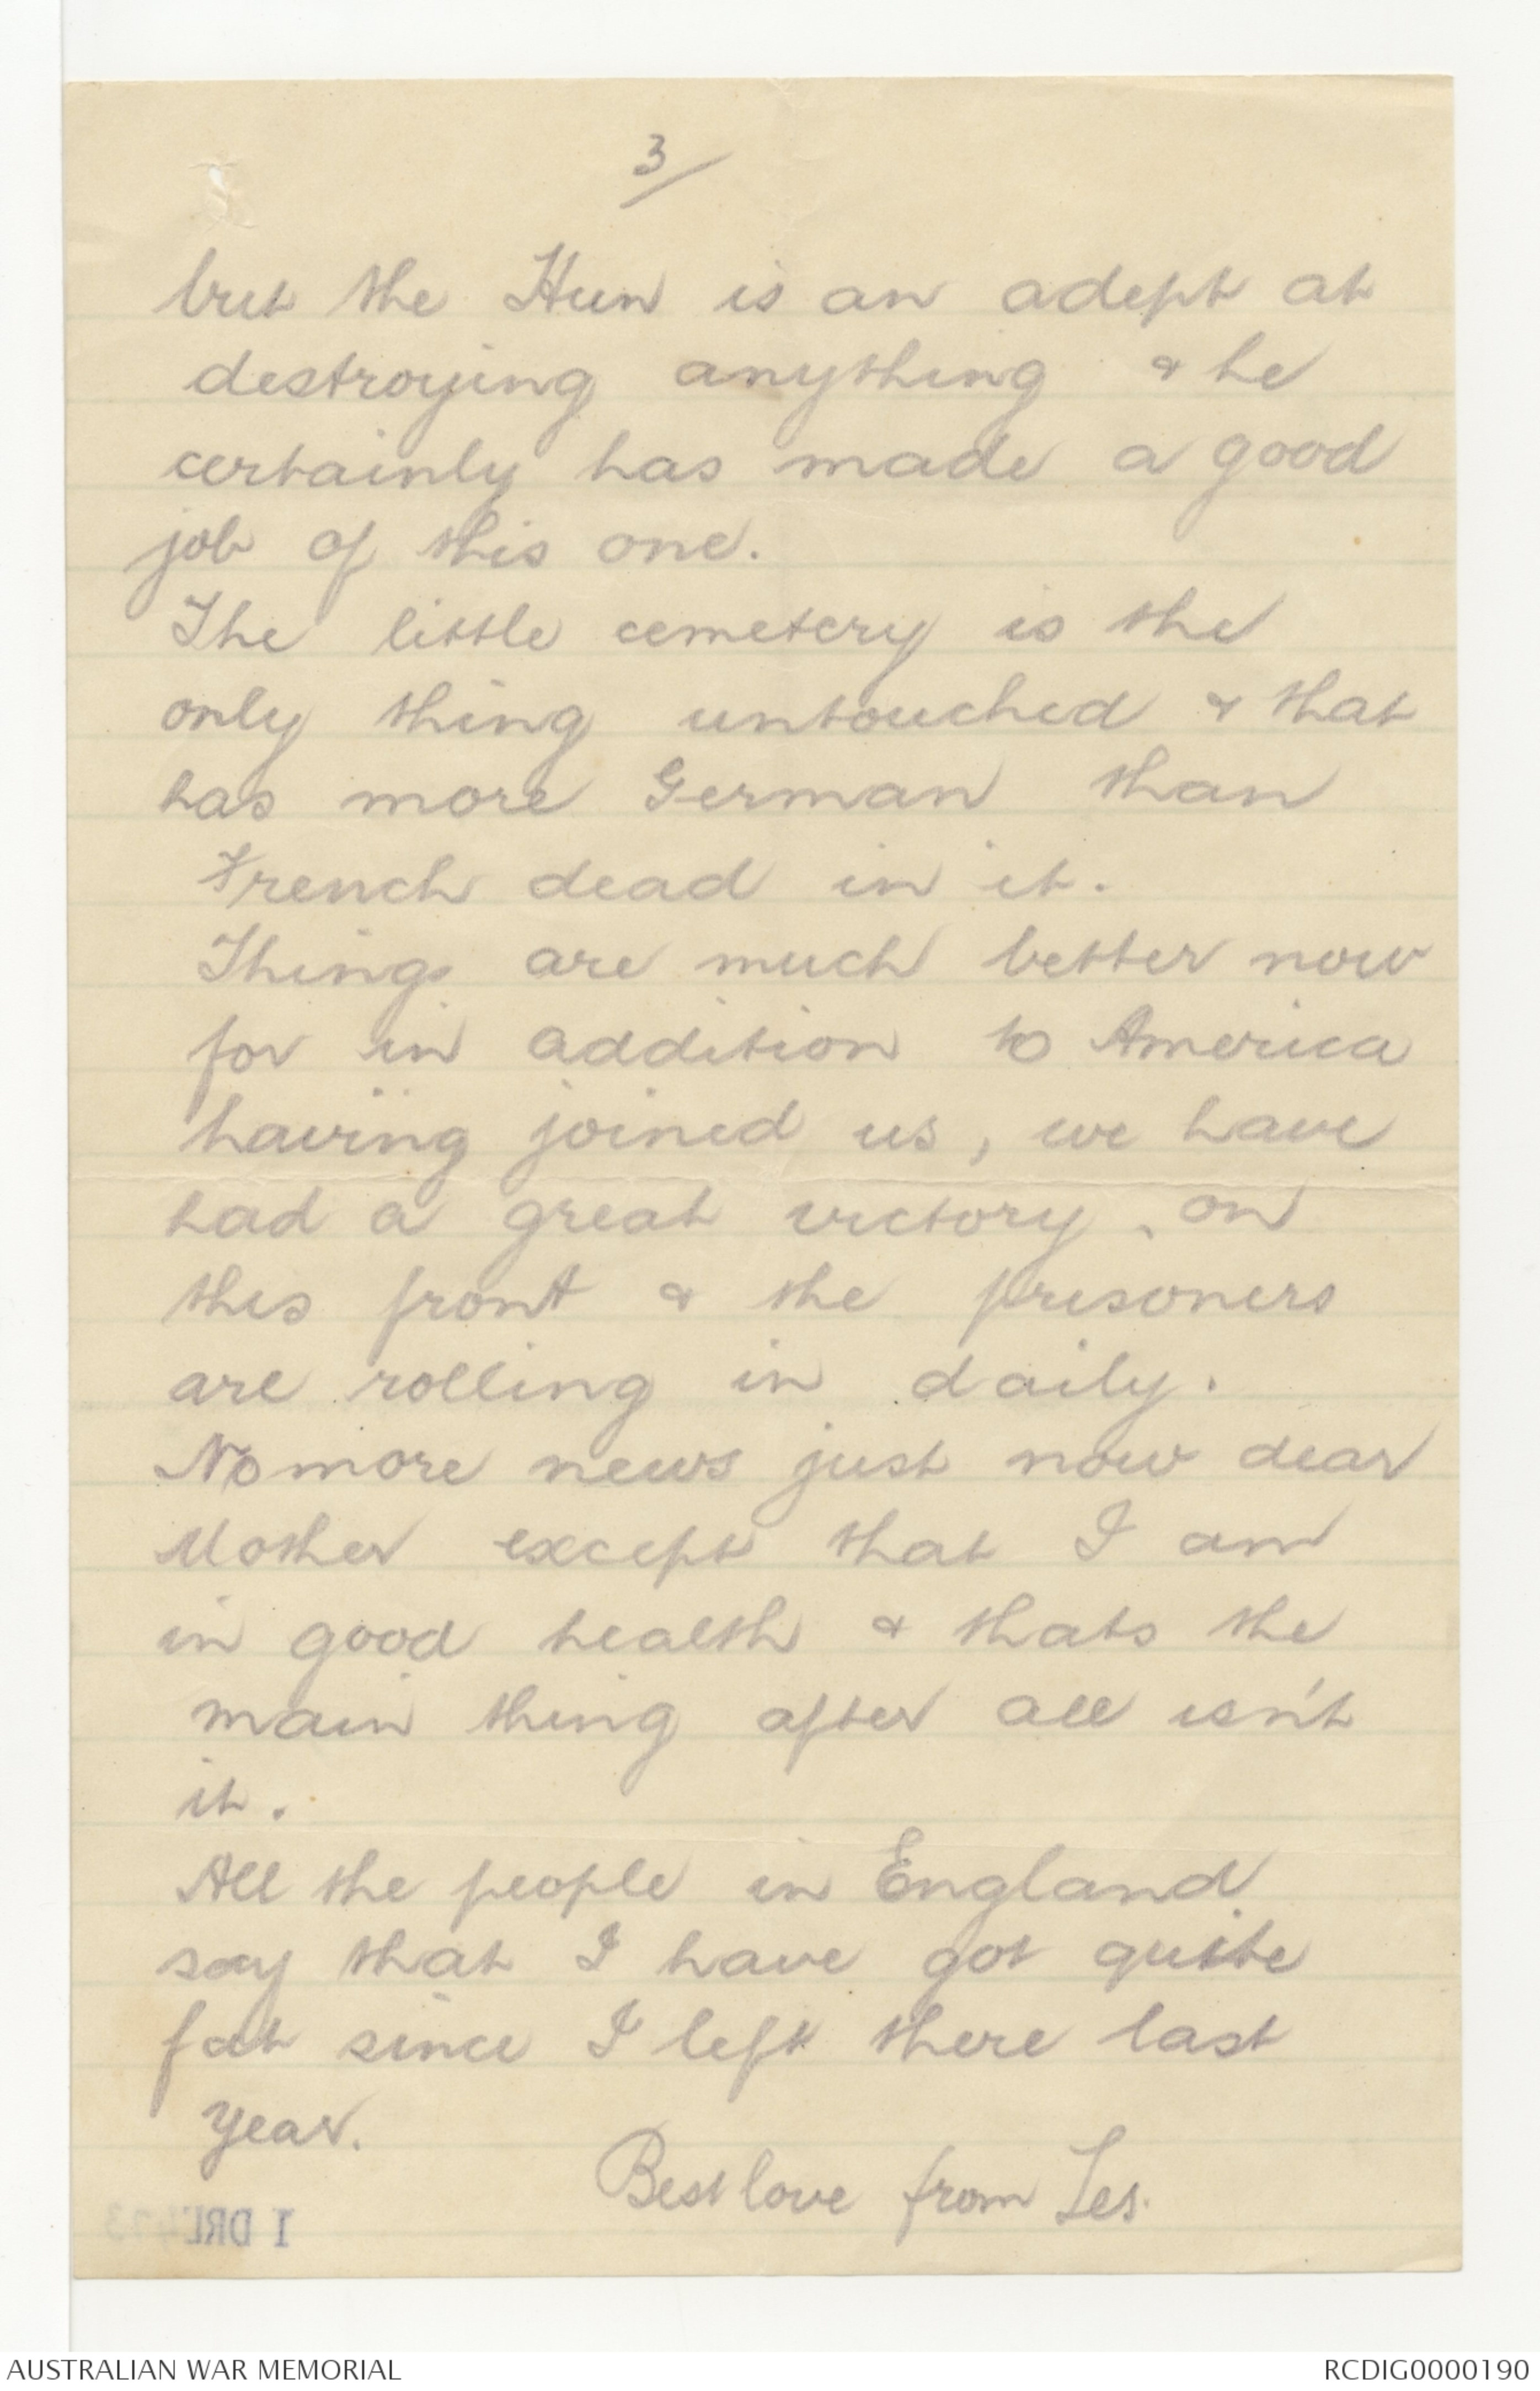 3/
but the Hun is an adept at
destroying anything & he
certainly has made a good
job of this one.
The little cemetery is the
only thing untouched & that
has more German than
French dead in it.
Things are much better now
for in addition to America
having joined us, we have
had a great victory on
this front & the prisoners
are rolling in daily.
No more news just now dear
Mother except that I am
in good health & thats the
main thing after all isn't
it.
All the people in England
say that I have got quite
fat since I left there last
year.
Best love from Les.
I DRL
AUSTRALIAN WAR MEMORIAL
RCDIG0000190